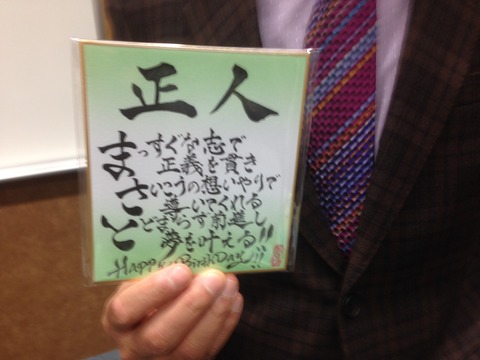 正人
まっすぐな志で
正義を貫き
さいこうの想いやりで
導いてくれる
とまらず前進し
夢を叶える!!
Happy BirthDay!!